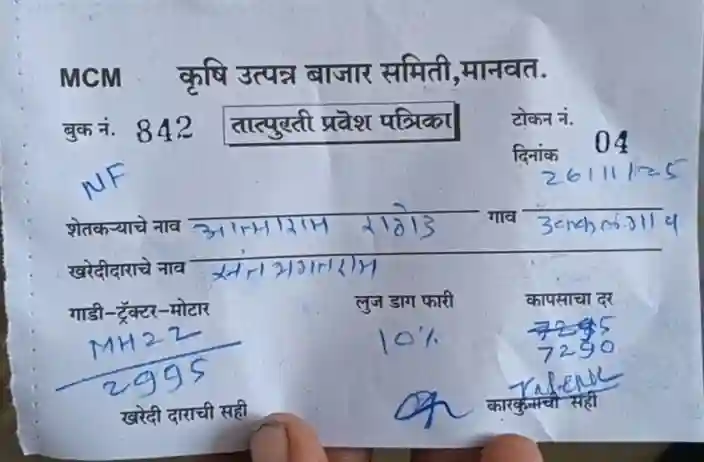 MCM कृषि उत्पन्न बाजार समिती,मानवत.
बुक नं. 842 तात्पुरती प्रवेश पत्रिका टोकन नं. 04
NF दिनांक 26/11/25
शेतकऱ्याचे नाव आत्माराम राठोड गाव
खरेदीदाराचे नाव संत भगतराम
गाडी-ट्रॅक्टर-मोटार लुज डाग फारी कापसाचा दर
MH22 10%
2995 7290
खरेदी दाराची सही कारकुनाची सही